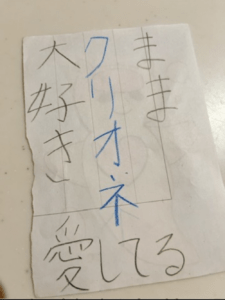 まま
クリオネ
大好き」
愛してる